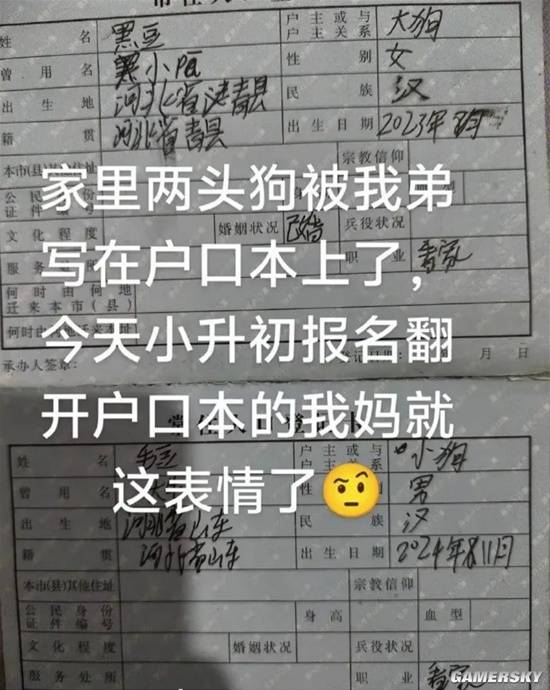 常住人口登
姓 名 黑豆 户主或与户主关系 大狗
曾用名 小 性别 女
出生地 河北省 青县 民族 汉
籍贯 河北省青县 出生日期 2023年 月
本市(县)其他住址 宗教信仰
公民身份证件编号
文化程度 婚姻状况 已婚 兵役状况
服务处所 职业 看家
何时由何地迁来本市(县)
何时由何地迁来本址
承办人签章: 登记日期: 月 日
家里两头狗被我弟
写在户口本上了,
今天小升初报名翻
开户口本的我妈就
这表情了🤨
常住人口登
姓 名 豆 户主或与户主关系 小狗
曾用名 大 性 男
出生地 河北省山东 民族 汉
籍贯 河北省山东 出生日期 2024年 11月
本市(县)其他住址 宗教信仰
公民身份证件编号 身高 血型
文化程度 婚姻状况 兵役状况
服务处所 职业 看家
GAMERSKY